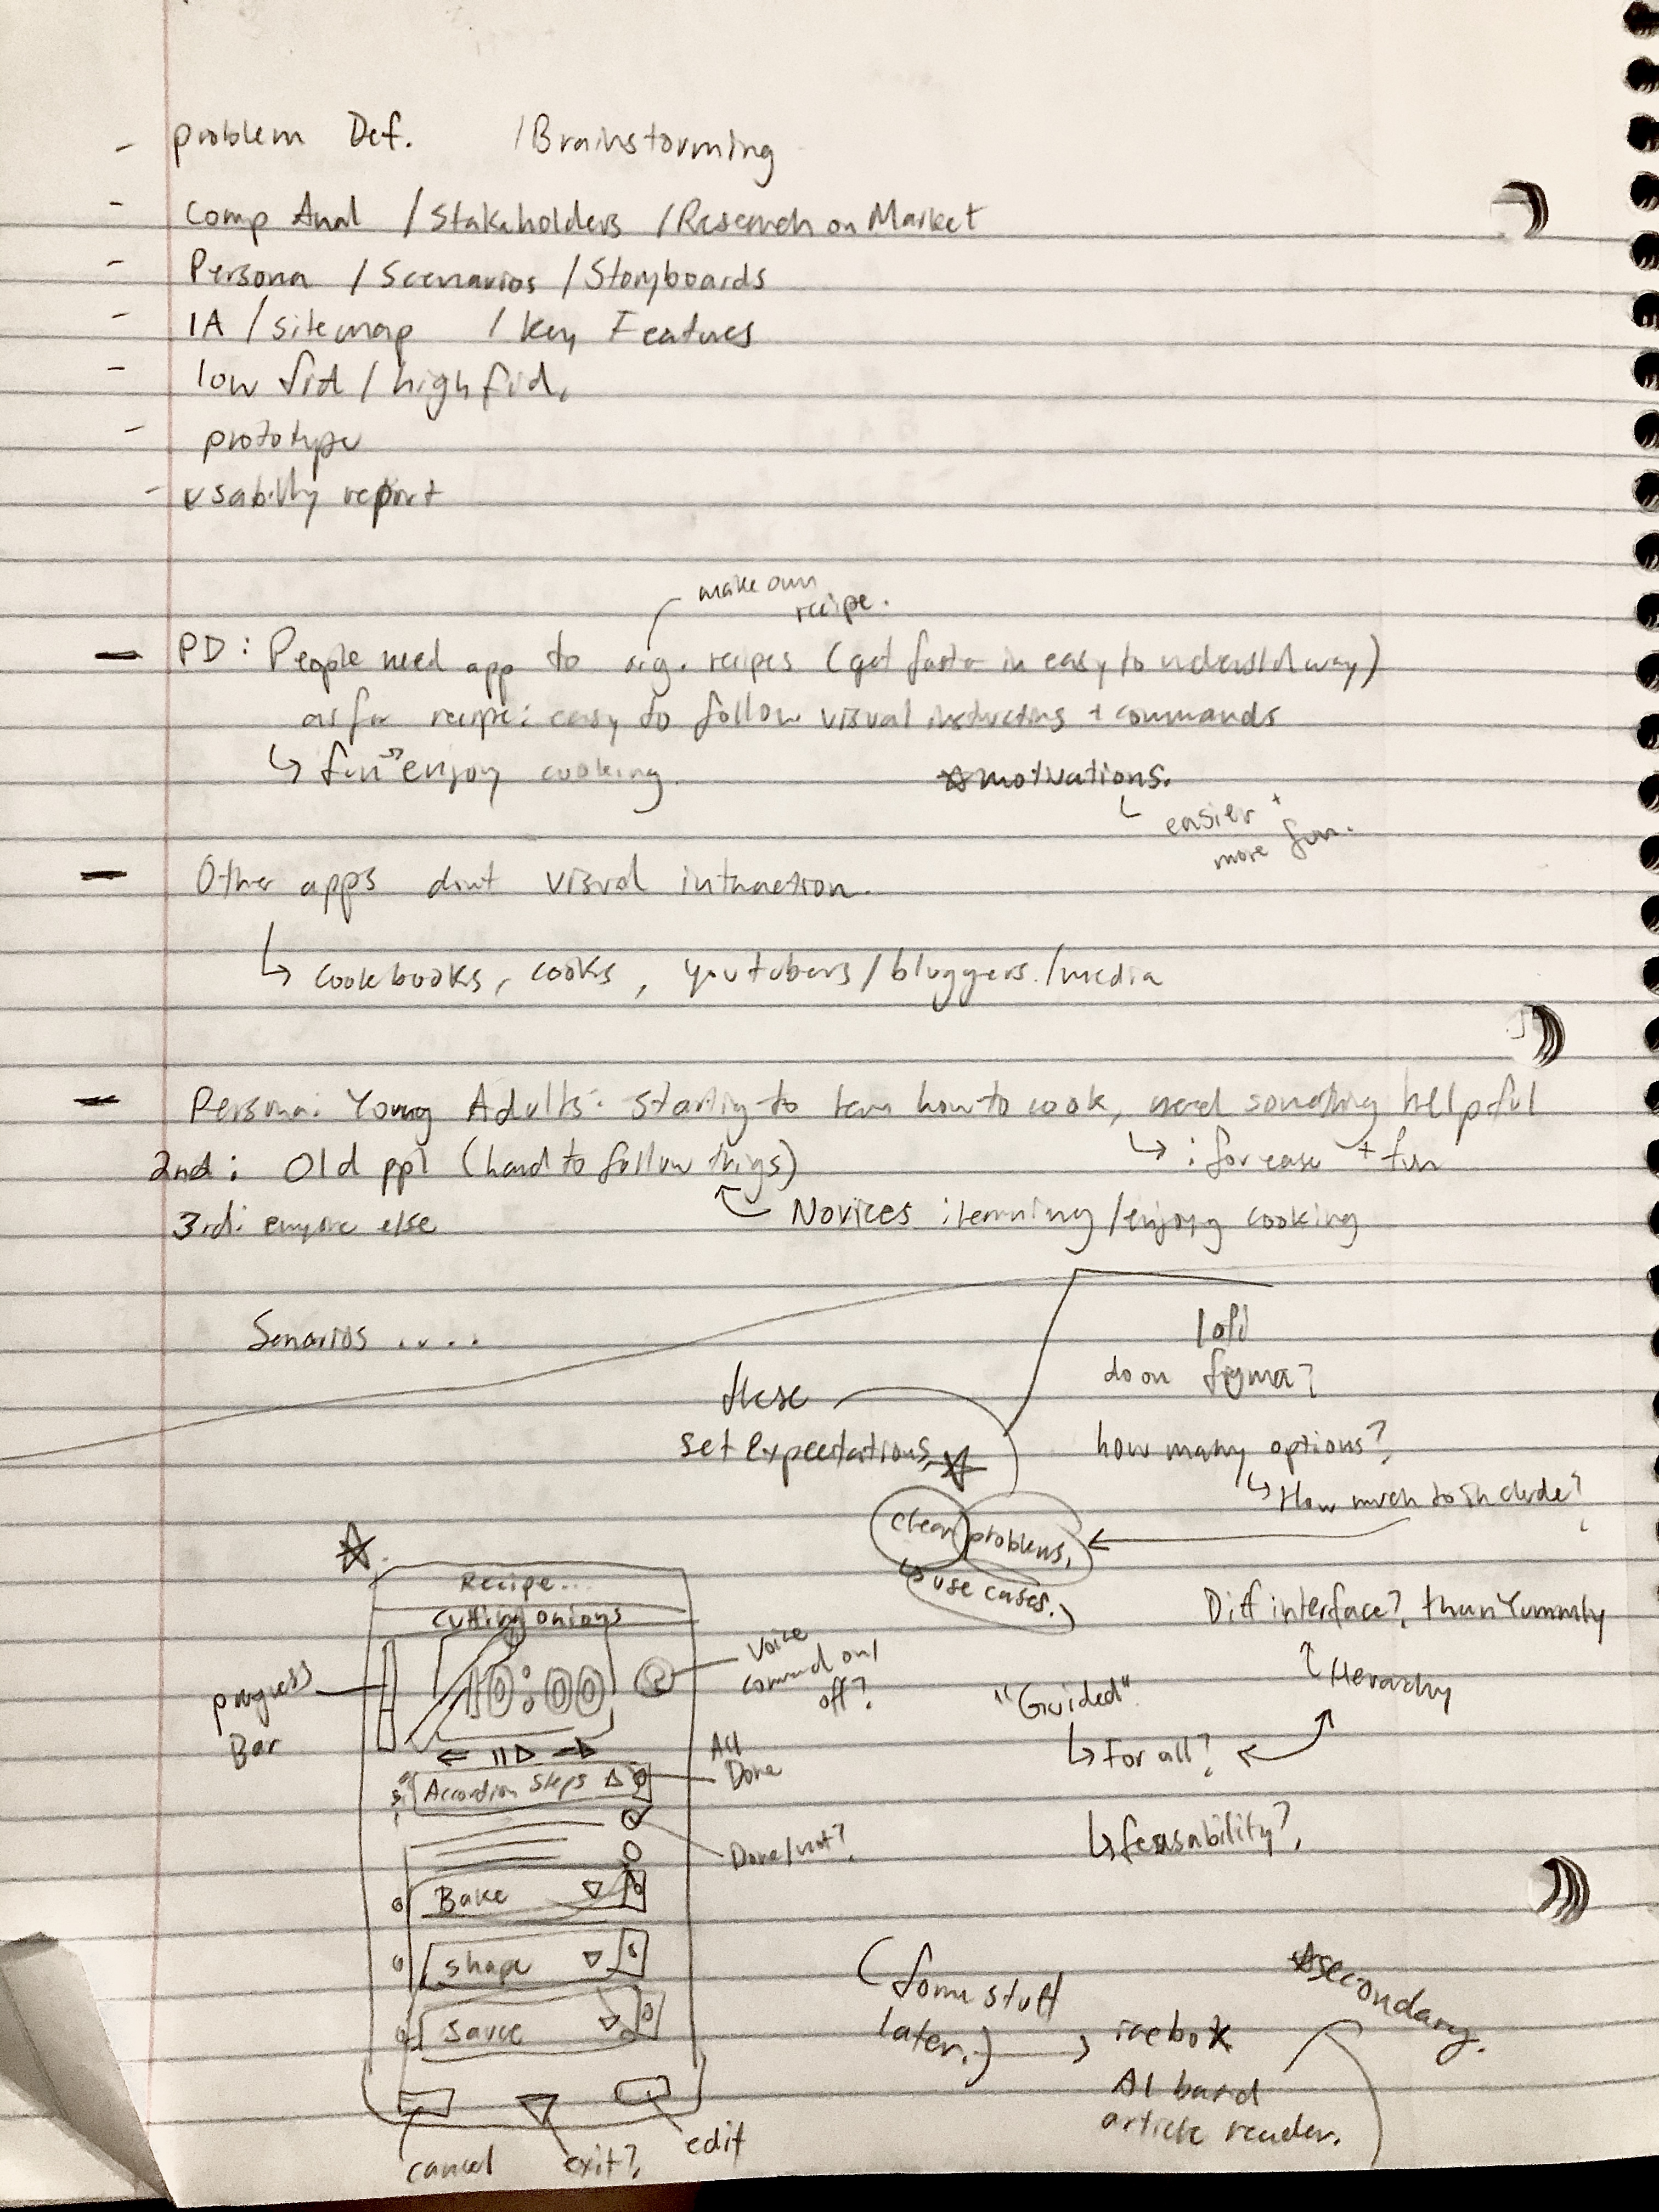 - problem Def. / Brainstorming
- Comp Anal / Stakeholders / Research on Market
- Persona / Scenarios / Storyboards
- IA / sitemap / key Features
- low fid / high fid.
- prototype
- usability report
make own
recipe.
- PD: People need app to org. recipes (get fasta in easy to way)
as for recipe: easy to follow visual instructions + commands
↳ fun enjoy cooking.
☆ motivations.
↳ easier +
more fun.
- Other apps dont visual interaction.
↳ cookbooks, cooks, youtubers / bloggers. / media
- Persona: Young Adults: starting to learn how to cook, need something helpful
↳ : for ease + fun
2nd: Old ppl (hard to follow things)
Novices : learning / enjoy cooking
3rd: else
Senarios .....
lofi
do on figma?
these
set Expectations, ☆
how many options?
↳ How much to include?
clear problems,
↳ use cases.
Diff interface? than Yummly
↑ Hierarchy
"Guided"
↳ For all?
↳ feasability?
☆
Recipe...
Cutting onions
10:00
progress
Bar
Voice
command on/
off?
← II ▷ →
Accordion Steps
All
Done
Done/not?
Bake
shape
sauce
cancel
exit?
edit
( stuff
later.) → icebox
☆ secondary.
AI based
article reader.